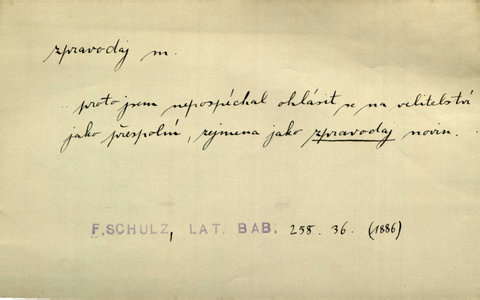 zpravodaj m.
proto jsem nepospíchal ohlásit se na velitelství
jako přespolní, zejmena jako zpravodaj novin.
F. SCHULZ, LAT. BAB. 258. 36. (1886)